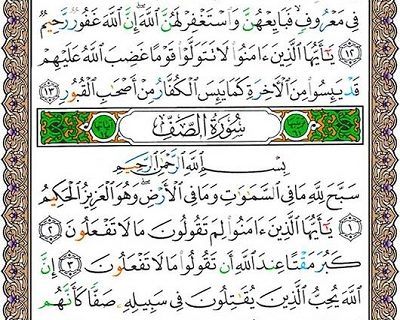 فِى مَعْرُوفٍ فَبَايِعْهُنَّ وَٱسْتَغْفِرْ لَهُنَّ ٱللَّهَ إِنَّ ٱللَّهَ غَفُورٌ رَّحِيمٌ
١٢ يَـٰٓأَيُّهَا ٱلَّذِينَ ءَامَنُوا۟ لَا تَتَوَلَّوْا۟ قَوْمًا غَضِبَ ٱللَّهُ عَلَيْهِمْ
قَدْ يَئِسُوا۟ مِنَ ٱلْـَٔاخِرَةِ كَمَا يَئِسَ ٱلْكُفَّارُ مِنْ أَصْحَـٰبِ ٱلْقُبُورِ ١٣
سُورَةُ ٱلصَّفِّ
بِسْمِ ٱللَّهِ ٱلرَّحْمَـٰنِ ٱلرَّحِيمِ
سَبَّحَ لِلَّهِ مَا فِى ٱلسَّمَـٰوَٰتِ وَمَا فِى ٱلْأَرْضِ ۖ وَهُوَ ٱلْعَزِيزُ ٱلْحَكِيمُ
١ يَـٰٓأَيُّهَا ٱلَّذِينَ ءَامَنُوا۟ لِمَ تَقُولُونَ مَا لَا تَفْعَلُونَ ٢
كَبُرَ مَقْتًا عِندَ ٱللَّهِ أَن تَقُولُوا۟ مَا لَا تَفْعَلُونَ ٣ إِنَّ
ٱللَّهَ يُحِبُّ ٱلَّذِينَ يُقَـٰتِلُونَ فِى سَبِيلِهِۦ صَفًّا كَأَنَّهُم